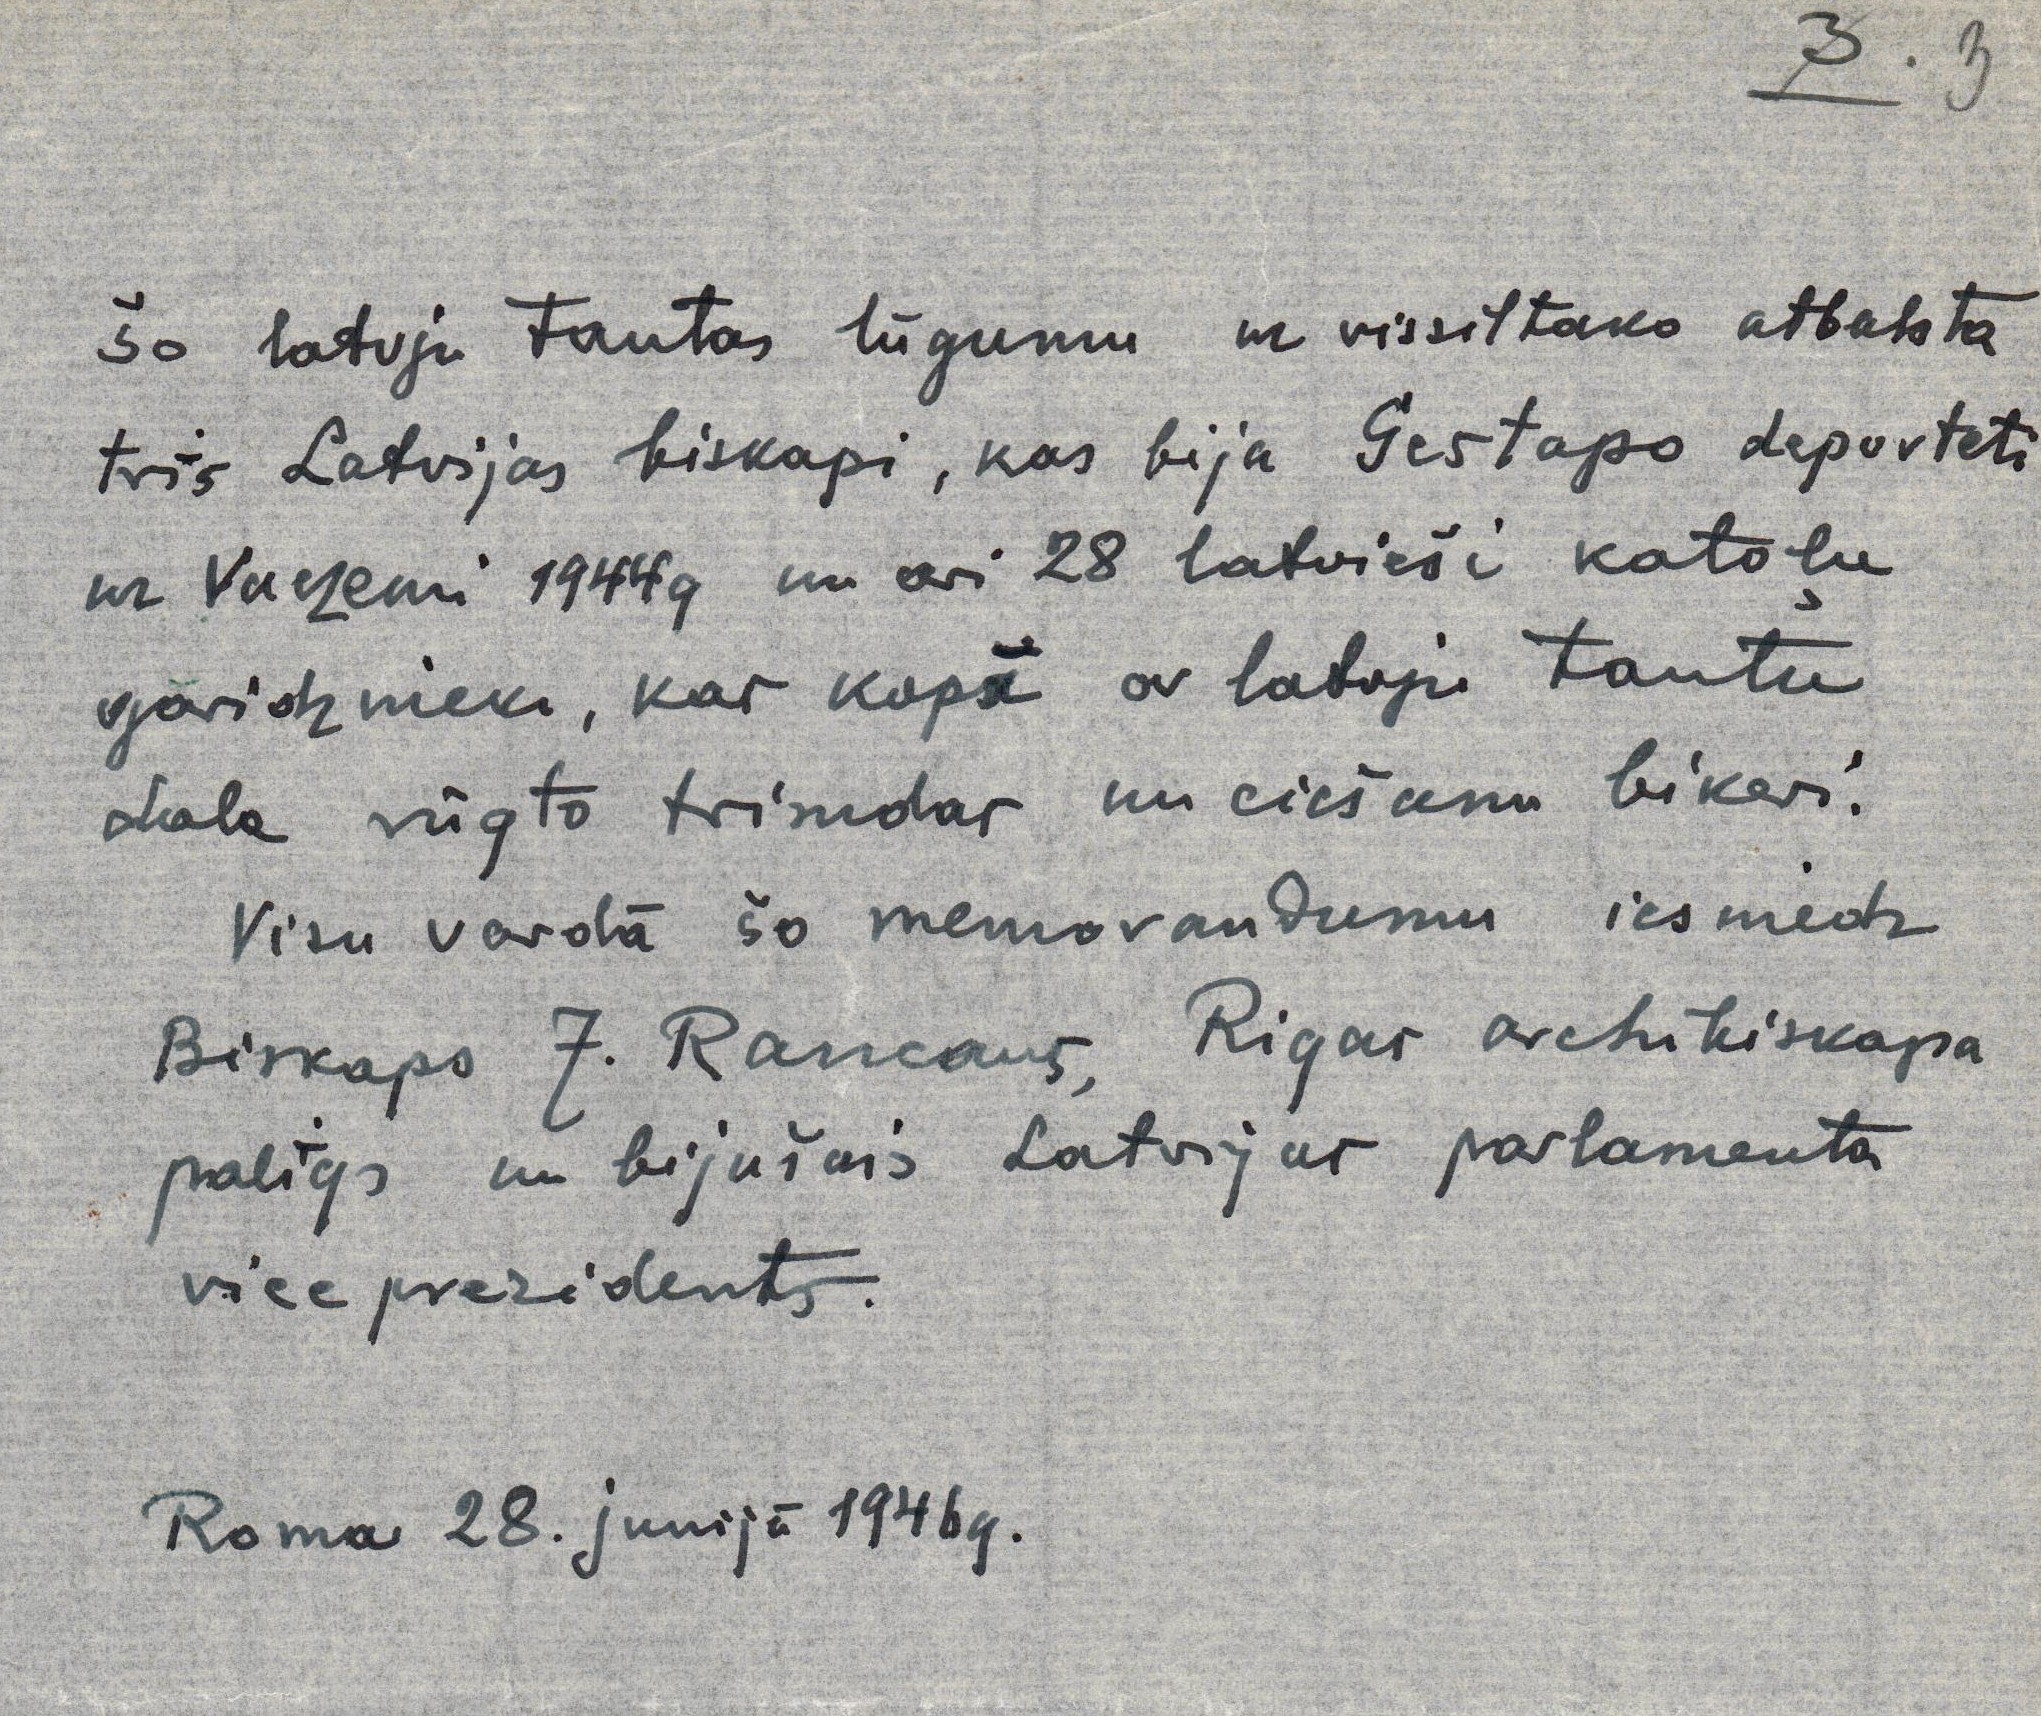 3. 3
šo latvju tautas lūgumu uz vissiltāko atbalsta
trīs Latvijas biskapi, kas bija Gestapo deporteti
uz Vaczemi 1944g un ari 28 latvieši katoļu
garidznieki, kas kopā ar latvju tautu
dala rūgto trimdas un ciešanu bikeri.
Visu vardā šo memorandumu iesniedz
Biskaps J. Rancans, Rigas archibiskapa
palīgs un bijušais Latvijas parlamenta
vice prezidents.
Roma 28. junijā 1946g.